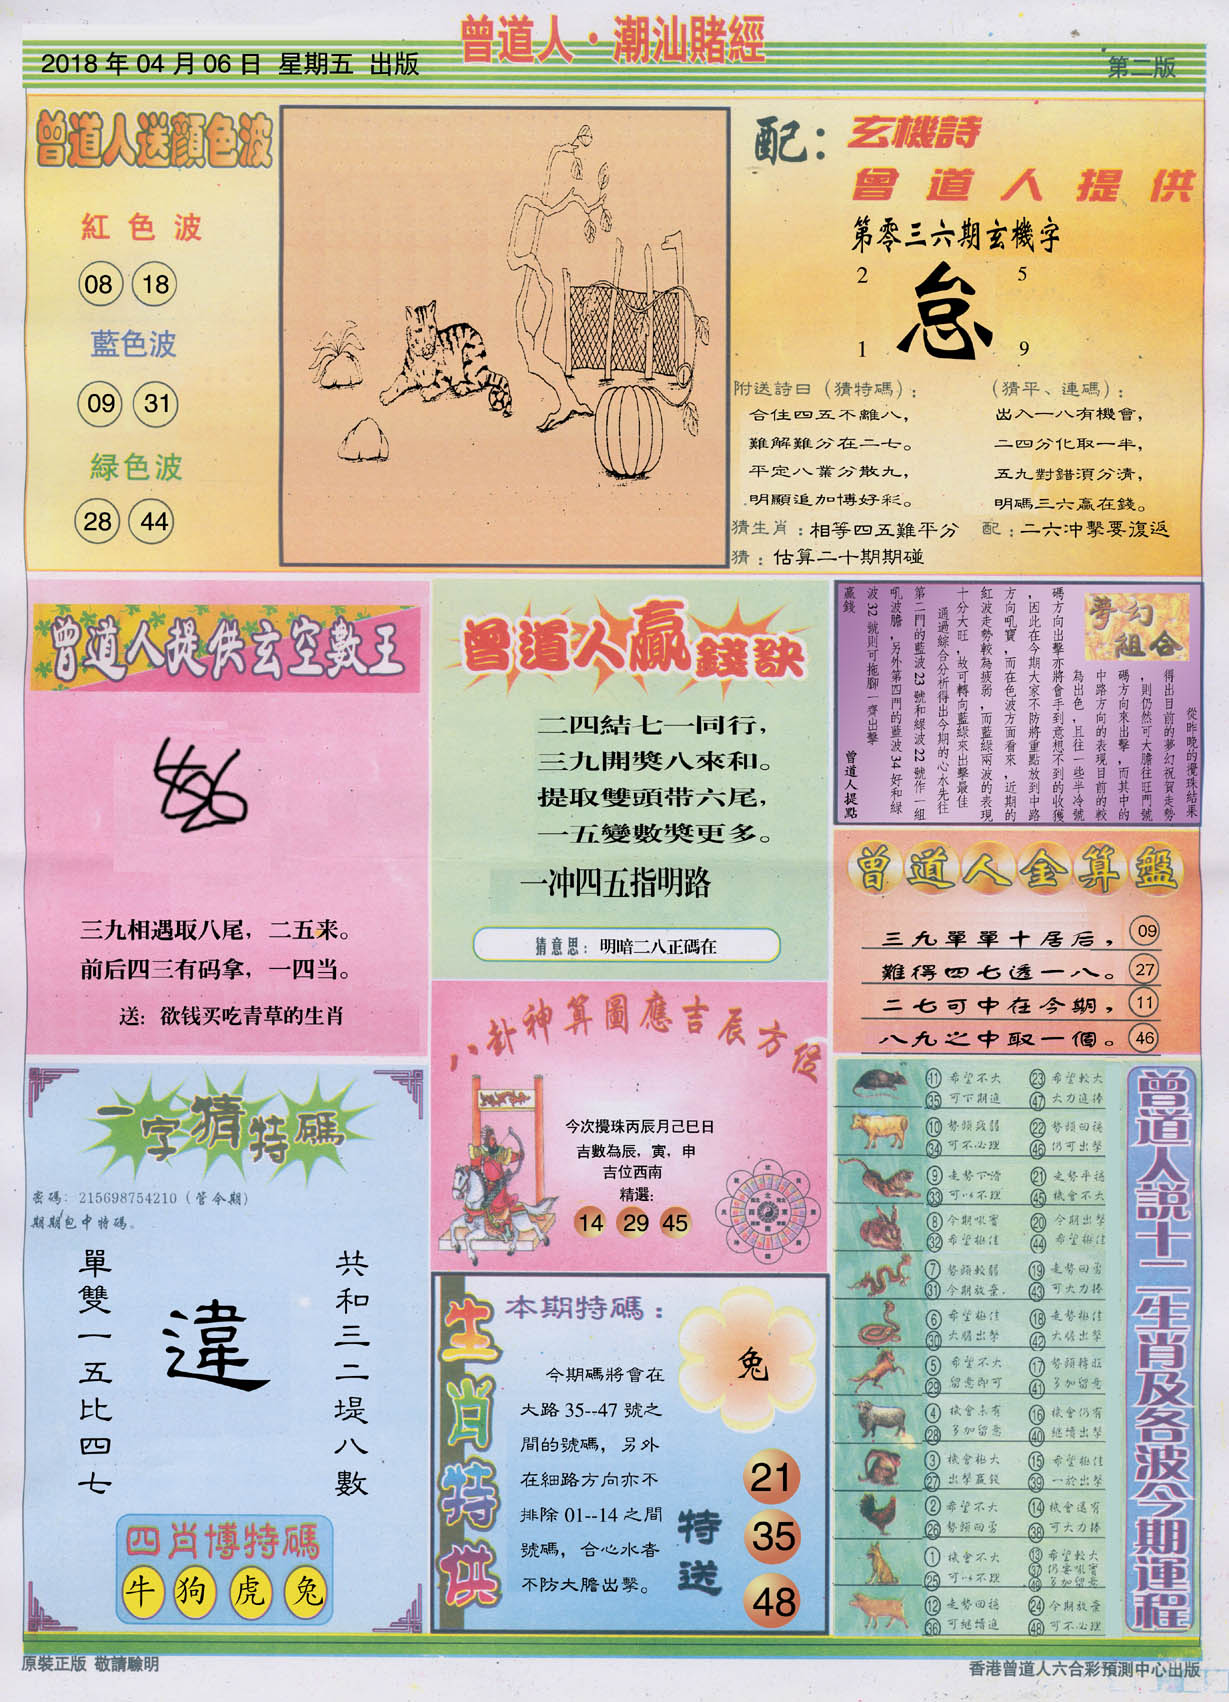 曾道人·潮汕賭經
2018 年 04 月 06 日 星期五 出版
第二版
曾道人送顔色波
紅色波
08 18
藍色波
09 31
緑色波
28 44
配：
玄機詩
曾道人提供
第零三六期玄機字
2 5
怠
1 9
附送詩曰（猜特碼）：
合住四五不離八，
難解難分在二七。
平定八業分散九，
明顯追加博好彩。
（猜平、連碼）：
出入一八有機會，
二四分化取一半，
五九對錯湏分清，
明碼三六贏在錢。
猜生肖：相等四五難平分
配：二六冲擊要復返
猜：估算二十期期碰
曾道人提供玄空數王
三九相遇取八尾，二五来。
前后四三有码拿，一四当。
送：欲钱买吃青草的生肖
曾道人贏錢訣
二四結七一同行，
三九開獎八來和。
提取雙頭带六尾，
一五變數獎更多。
一冲四五指明路
猜意思：明暗二八正碼在
夢幻
組合
從昨晚的攪珠結果
得出目前的夢幻祝賀走勢
，則仍然可大膽往旺門號
碼方向來出擊，而其中的
中路方向的表現目前的較
為出色，且往一些半冷號
碼方向出擊亦將會手到意想不到的收獲
，因此在今期大家不防將重點放到中路
方向吼寶，而在色波方面看來，近期的
紅波走勢較為疲弱，而藍綠兩波的表現
十分大旺，故可轉向藍綠來出擊最佳
通過綜合分析得出今期的心水先往
第二門的藍波 23 號和綠波 22 號作一組
吼波膽，另外第四門的藍波 34 好和綠
波 32 號則可拖腳一齊出擊
贏錢
曾道人提點
曾道人金算盤
三九單單十居后， 09
難得四七透一八。 27
二七可中在今期， 11
八九之中取一個。 46
八卦神算圖應吉辰方位
今次攪珠丙辰月己巳日
吉數為辰，寅，申
吉位西南
精選：
14 29 45
一字猜特碼
密碼：215698754210（管今期）
期期包中特碼。
單雙一五比四七
違
共和三二堤八數
四肖博特碼
牛 狗 虎 兔
生肖特供
本期特碼：
兔
今期碼將會在
大路 35--47 號之
間的號碼，另外
在細路方向亦不
排除 01--14 之間
號碼，合心水者
不防大膽出擊。
特送
21
35
48
曾道人説十二生肖及各波今期運程
11 希望不大 23 希望較大
35 可下期追 47 大力追捧
10 勢頭疲弱 22 勢頭回穩
34 可不必理 46 仍可出擊
9 走勢下滑 21 走勢平穩
33 可以不理 45 機會不大
8 今期吼寶 20 今期出擊
32 希望極佳 44 希望極佳
7 勢頭較弱 19 走勢回勇
31 今期放棄 43 可大力捧
6 希望極佳 18 走勢極佳
30 大膽出擊 42 大膽出擊
5 希望不大 17 勢頭轉旺
29 留意即可 41 多加留意
4 機會未有 16 機會仍有
28 多加留意 40 繼續出擊
3 機會極大 15 希望極佳
27 出擊贏錢 39 一於出擊
2 希望不大 14 機會還有
26 勢頭回勇 38 可大力捧
1 機會不大 13 希望較大
25 可以不理 37 仍需吼寶
49 多加留意
12 走勢回穩 24 今期放棄
36 可繼續追 48 可不必理
原裝正版 敬請驗明
香港曾道人六合彩預測中心出版